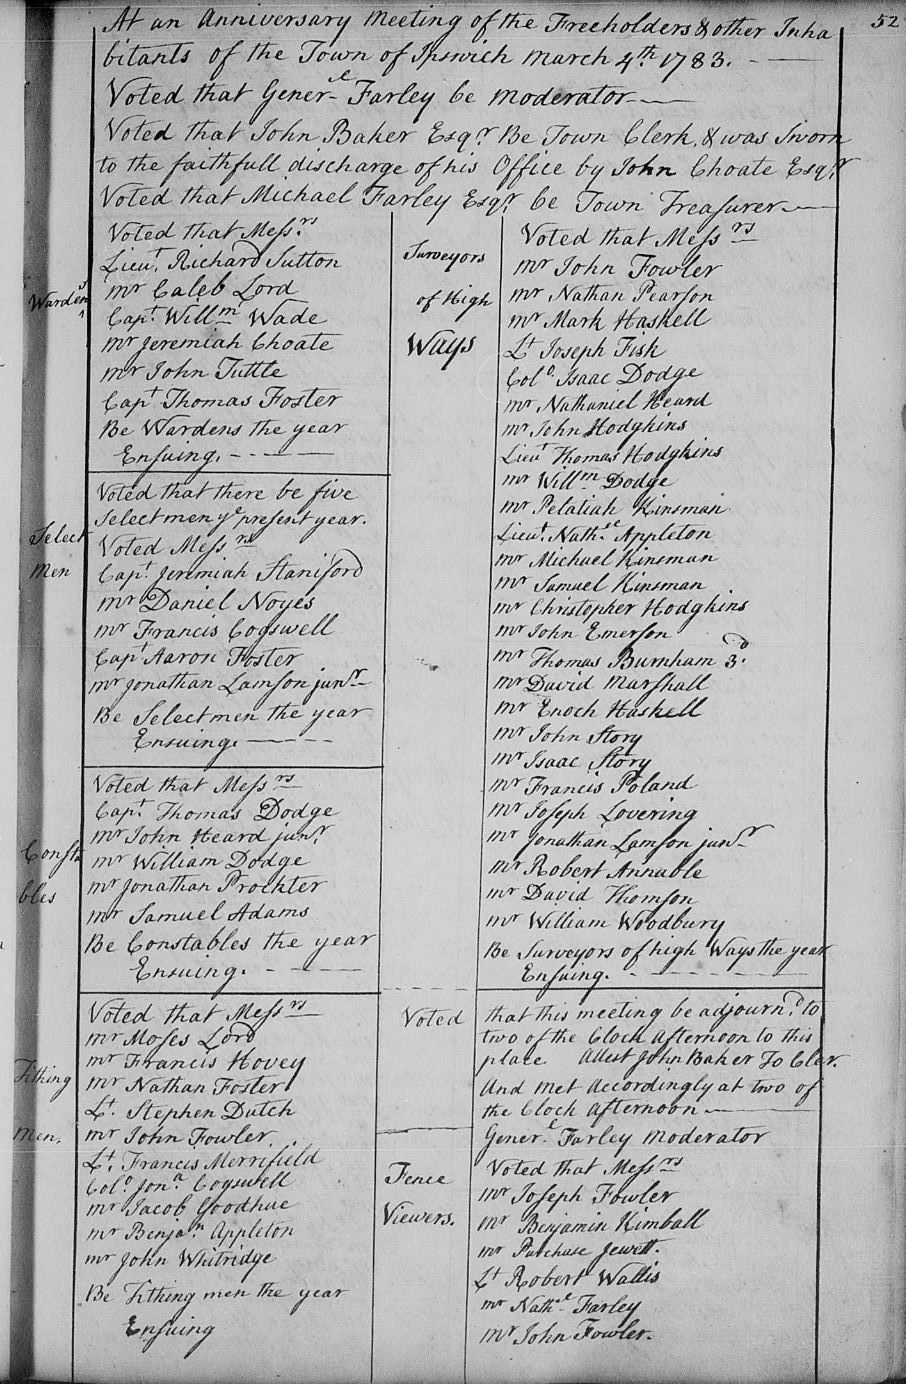 52
At an Anniversary meeting of the Freeholders & other Inha
bitants of the Town of Ipswich March 4th. 1783.
Voted that Generl Farley be moderator
Voted that John Baker Esqr. Be Town Clerk, & was Sworn
to the faithfull discharge of his Office by John Choate Esqr.
Voted that Michael Farley Esqr. be Town Treasurer
Wardens
Voted that Messrs
Lieut. Richard Sutton
mr Caleb Lord
Capt. Willm Wade
mr Jeremiah Choate
mr John Tuttle
Capt Thomas Foster
Be Wardens the year
Ensuing.
Select
men
Voted that there be five
Selectmen ye present year.
Voted Messrs
Capt. Jeremiah Staniford
mr Daniel Noyes
mr Francis Cogswell
Capt Aaron Foster
mr Jonathan Lamson junr
Be Selectmen the year
Ensuing.
Consta
bles
Voted that Messrs
Capt. Thomas Dodge
mr John Heard junr.
mr William Dodge
mr Jonathan Prockter
mr Samuel Adams
Be Constables the year
Ensuing.
Tithing
men.
Voted that Messrs
mr Moses Lord
mr Francis Hovey
mr Nathan Foster
Lt. Stephen Dutch
mr John Fowler.
Lt. Francis Merrifield
Colo Jona. Cogswell
mr Jacob Goodhue
mr Benjan. Appleton
mr John Whitridge
Be Tithing men the year
Ensuing
Surveyors
of High
Ways
Voted that Messrs
mr John Fowler
mr Nathan Pearson
mr Mark Haskell
Lt Joseph Fisk
Colo. Isaac Dodge
mr Nathaniel Heard
mr John Hodgkins
Lieut Thomas Hodgkins
mr Willm Dodge
mr Pelatiah Kinsman
Lieut. Nathel Appleton
mr Michael Kinsman
mr Samuel Kinsman
mr Christopher Hodgkins
mr John Emerson
mr Thomas Burnham 3d.
mr David Marshall
mr Enoch Haskell
mr John Story
mr Isaac Story
mr Francis Poland
mr Joseph Lovering
mr Jonathan Lamson junr
mr Robert Annable
mr David Thomson
mr William Woodbury
Be Surveyors of high Ways the year
Ensuing.
Voted that this meeting be adjournd. to
two of the Clock afternoon to this
place Attest John Baker To Cler.
And met accordingly at two of
the Clock afternoon
Generl Farley moderator
Fence
Viewers.
Voted that Messrs
mr Joseph Fowler
mr Benjamin Kimball
mr Purchase Jewett.
Lt Robert Wallis
mr Nathel Farley
mr John Fowler.